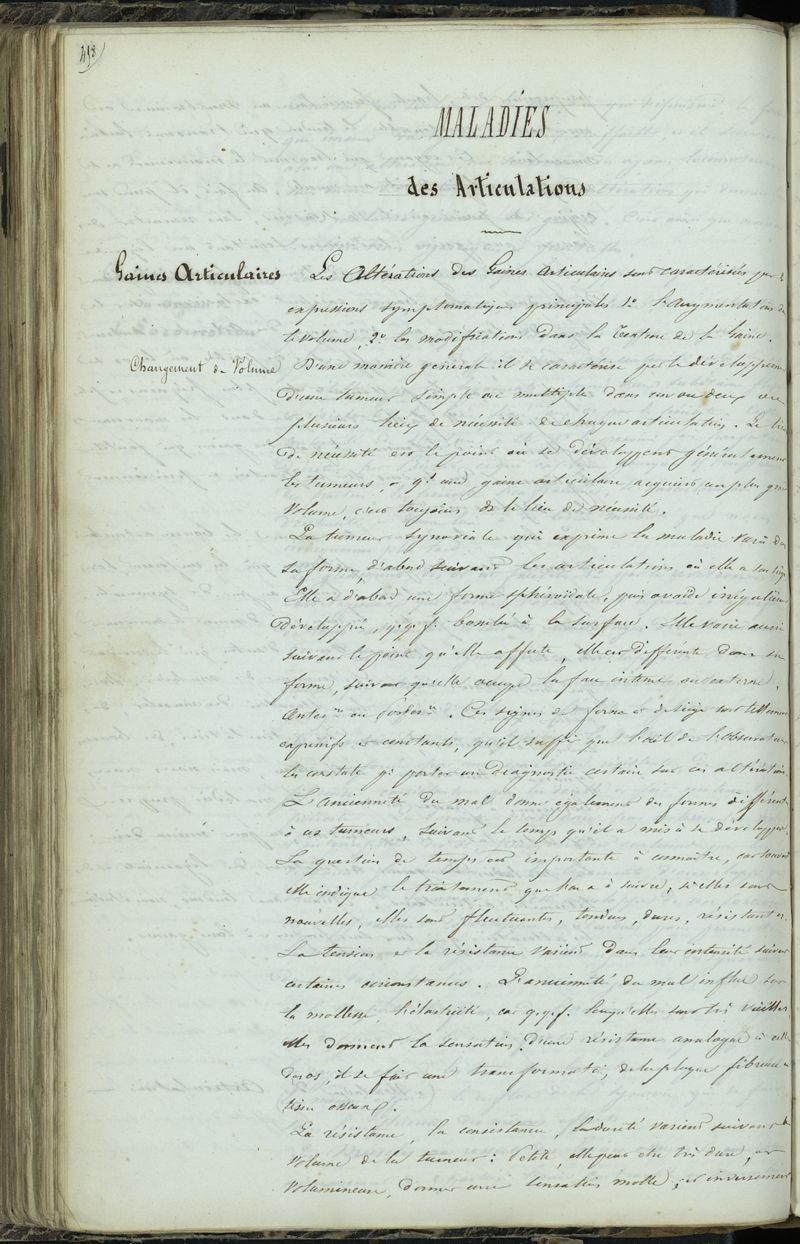 418
MALADIES
des Articulations
Gaines Articulaires
Les Altérations des Gaines Articulaires sont caractérisées par 2
expressions symptomatiques principales 1º l'augmentation de
le volume, 2º les modifications dans la texture de la Gaine.
Changement de Volume
D'une manière générale il se caractérise par le développement
d'une tumeur simple ou multiple dans un ou deux ou
plusieurs lieux de nécessité de chaque articulation. Le lieu
de nécessité est le point où se développent généralement
les tumeurs, & qd une gaine articulaire acquiert un plus grand
volume, c'est toujours de le lieu de nécessité.
La tumeur synoviale qui exprime la maladie varie dans
sa forme, d'abord suivant les articulations où elle a son siège
Elle a d'abord une forme sphéroïdale, puis ovoïde irrégulière
développée, q.q.f. bosselée à la surface. Elle varie aussi
suivant le point qu'elle affecte, elle est différente dans sa
forme, suivant qu'elle occupe la face interne ou externe,
antérre ou postérre. Ces signes de forme et de siège sont tellement
expressifs & constants, qu'il suffit que l'œil de l'observateur
les constate pr porter un diagnostic certain sur ces altérations.
L'ancienneté du mal donne également des formes différentes
à ces tumeurs, suivant le temps qu'il a mis à se développer.
La question de temps est importante à connaître, car souvent
elle indique le traitement que l'on a à suivre, si elles sont
nouvelles, elles sont fluctuantes, tendues, dures, résistantes.
La tension et la résistance varient dans leur intensité suivant
certaines circonstances. L'ancienneté du mal influe sur
la mollesse, l'élasticité, car q.q.f. lorsqu'elles sont très vieilles,
elles donnent la sensation d'une résistance analogue à celle
des os, il se fait une transformatn de la plaque fibreuse en
tissu osseux.
La résistance, la consistance, la dureté varient suivant le
volume de la tumeur : Petite, elle peut être très dure, et
volumineuse, donner une sensation molle, et inversement